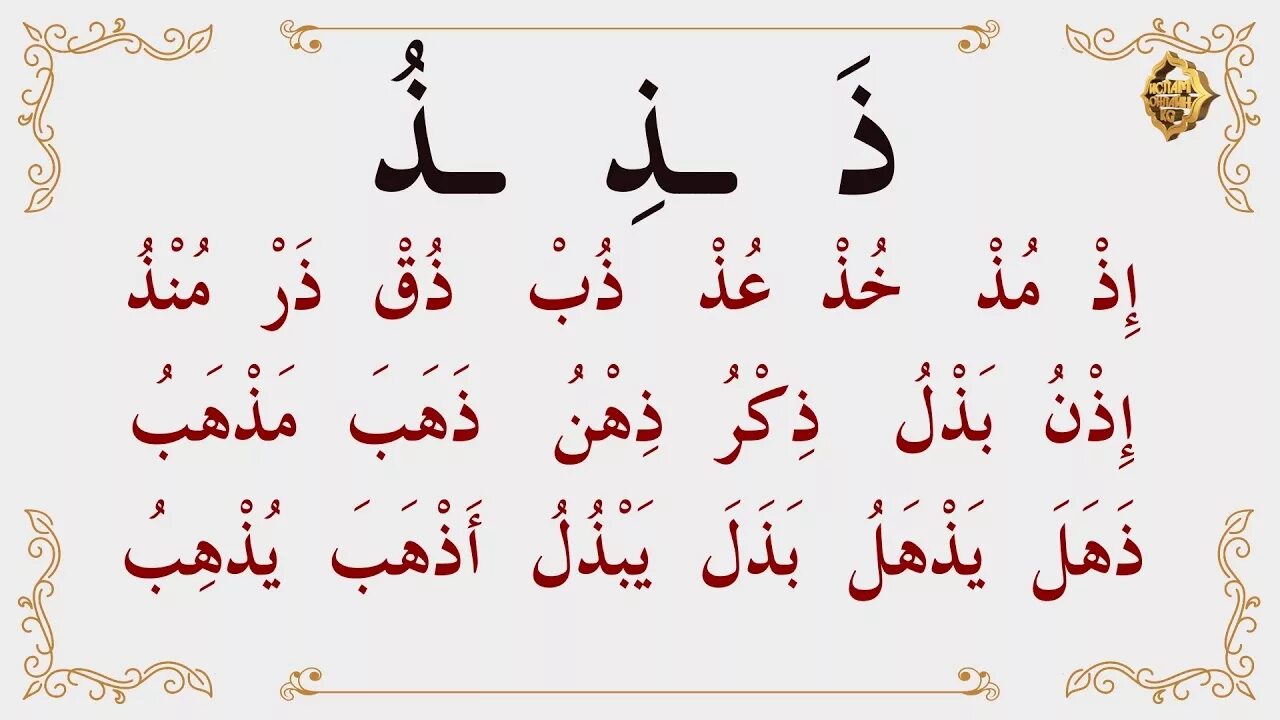 ذَ ـذِ ـذُ
ИСЛАМ
ОНЛАЙН
KG
إِذْ مُذْ خُذْ عُذْ ذُبْ ذُقْ ذَرْ مُنْذُ
إِذْنُ بَذْلُ ذِكْرُ ذِهْنُ ذَهَبَ مَذْهَبُ
ذَهَلَ يَذْهَلُ بَذَلَ يَبْذُلُ أَذْهَبَ يُذْهِبُ